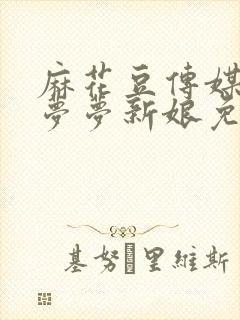 麻花豆傳媒
夢夢新娘免
基努·里維斯